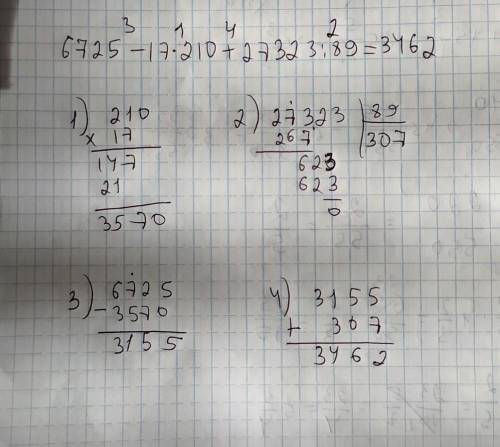 3 1 4 2
6725 - 17·210 + 27323:89 = 3462
1) 210
× 17
147
21
3570
2) 27323 | 89
267 | 307
623
623
0
3) 6725
- 3570
3155
4) 3155
+ 307
3462